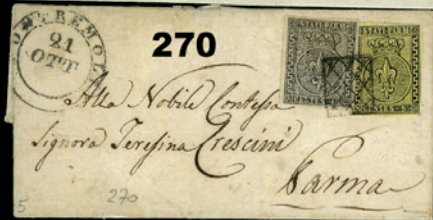 PONTREMOLI
21
OTT
270
STATI PARM.
STATI PARM.
CENTES. 5
Alla Nobile Contessa
Signora Teresina Crescini
Parma
5
270